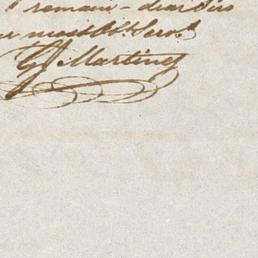 I remain - dear Sir
most Obt. Servt.
G J Martinez